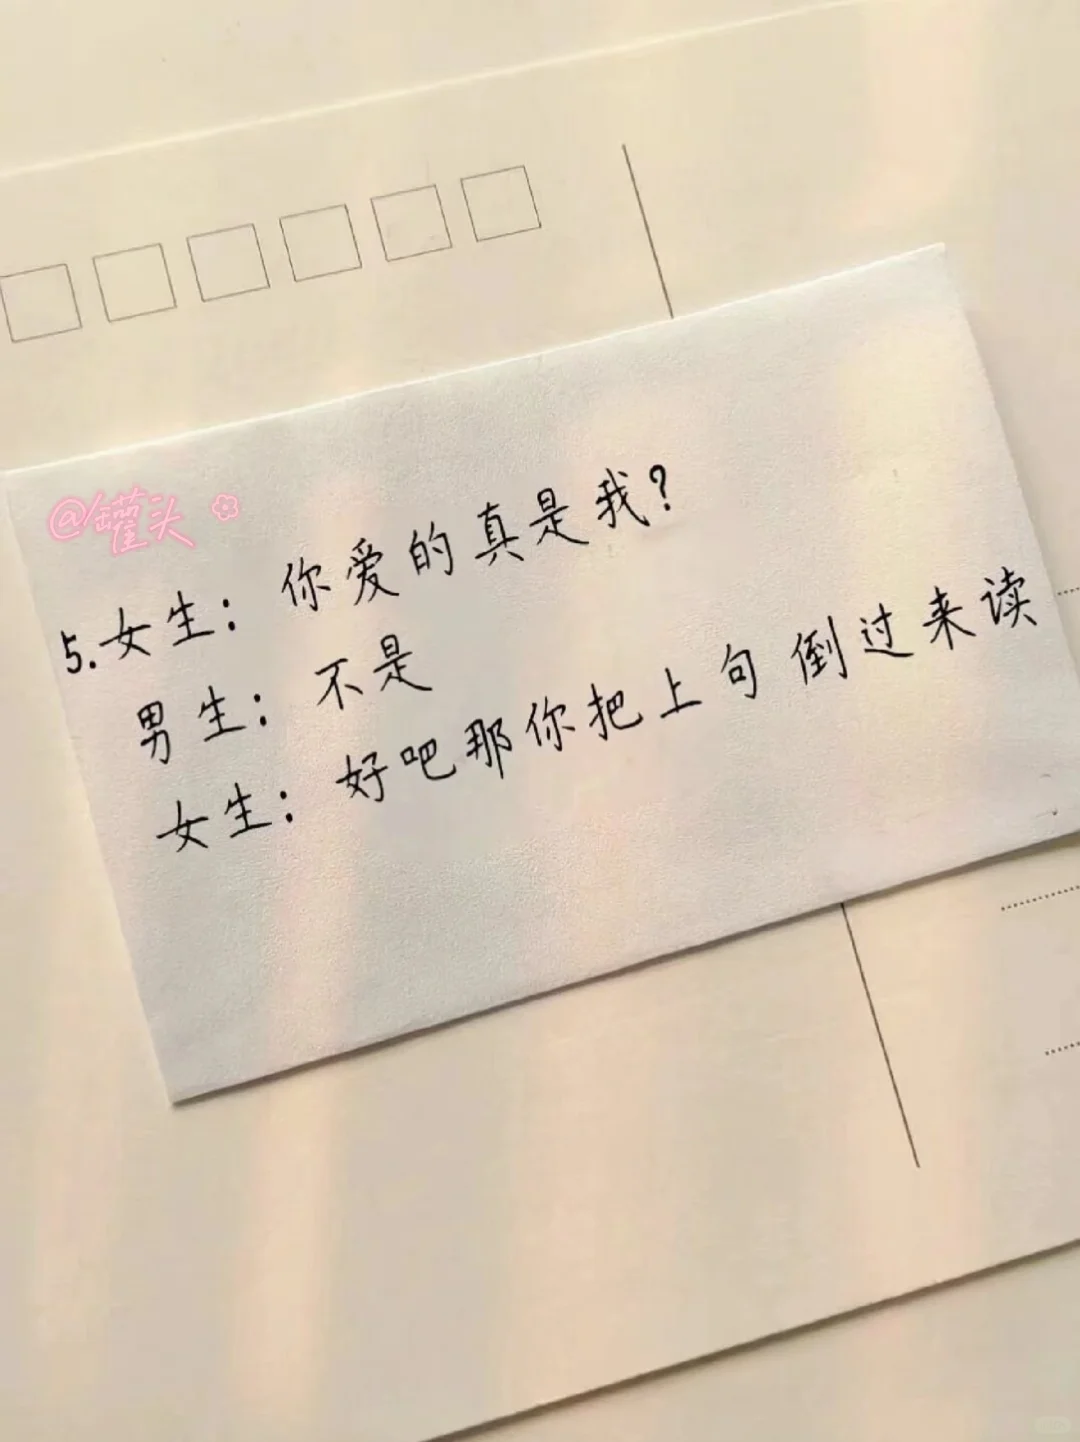 @罐头
5.女生：你爱的真是我？
男生：不是
女生：好吧那你把上句倒过来读